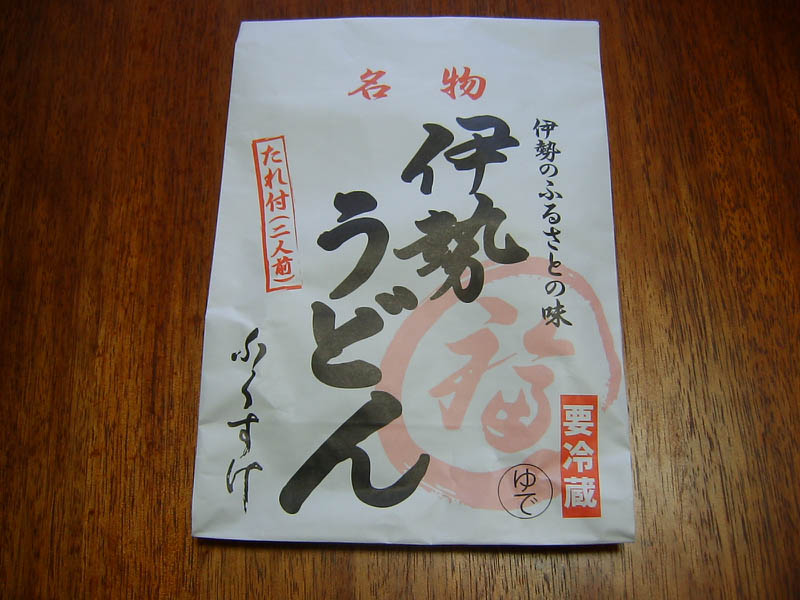 名物
伊勢のふるさとの味
伊勢
うどん
たれ付(二人前)
ふくすけ
福
要冷蔵
ゆで